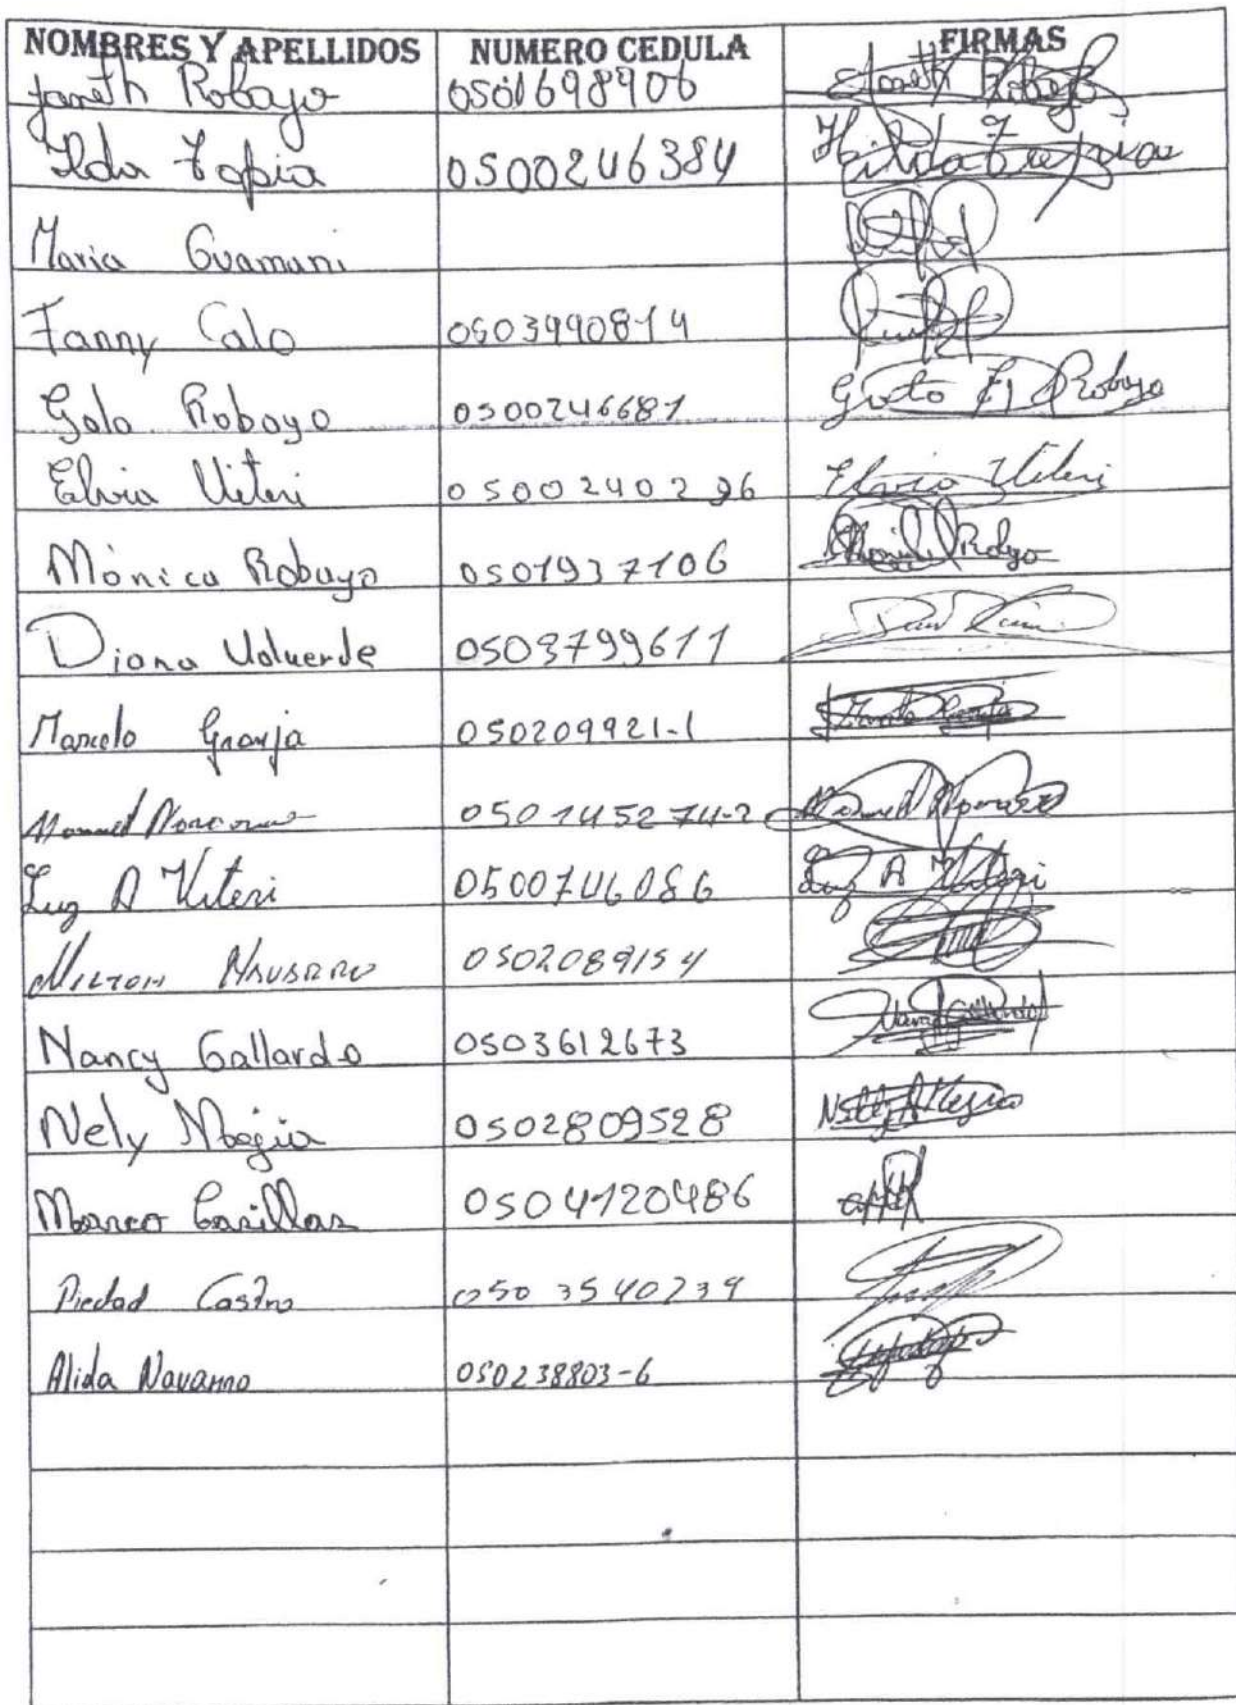 NOMBRES Y APELLIDOS NUMERO CEDULA FIRMAS
Janeth Robayo 0501698906 Janeth Robayo
Ilda Tapia 0500246384 Hilda
Maria Guamani
Fanny Calo 0503990814
Golo Robayo 0500246681 Robayo
Elvia Viteri 0500240296 Elvia Viteri
Mónica Robayo 0501937106 Robayo
Diana Valverde 0503799611
Marcelo Granja 050209921-1
Manuel 050145274-2 Manuel
Luz A Viteri 0500746086 Luz A Viteri
Milton Navarro 0502089154
Nancy Gallardo 0503612673 Nancy Gallardo
Nely 0502809528 Nelly
Marco Casillas 0504120486
Piedad Castro 0503540239
Alida Navarro 050238803-6